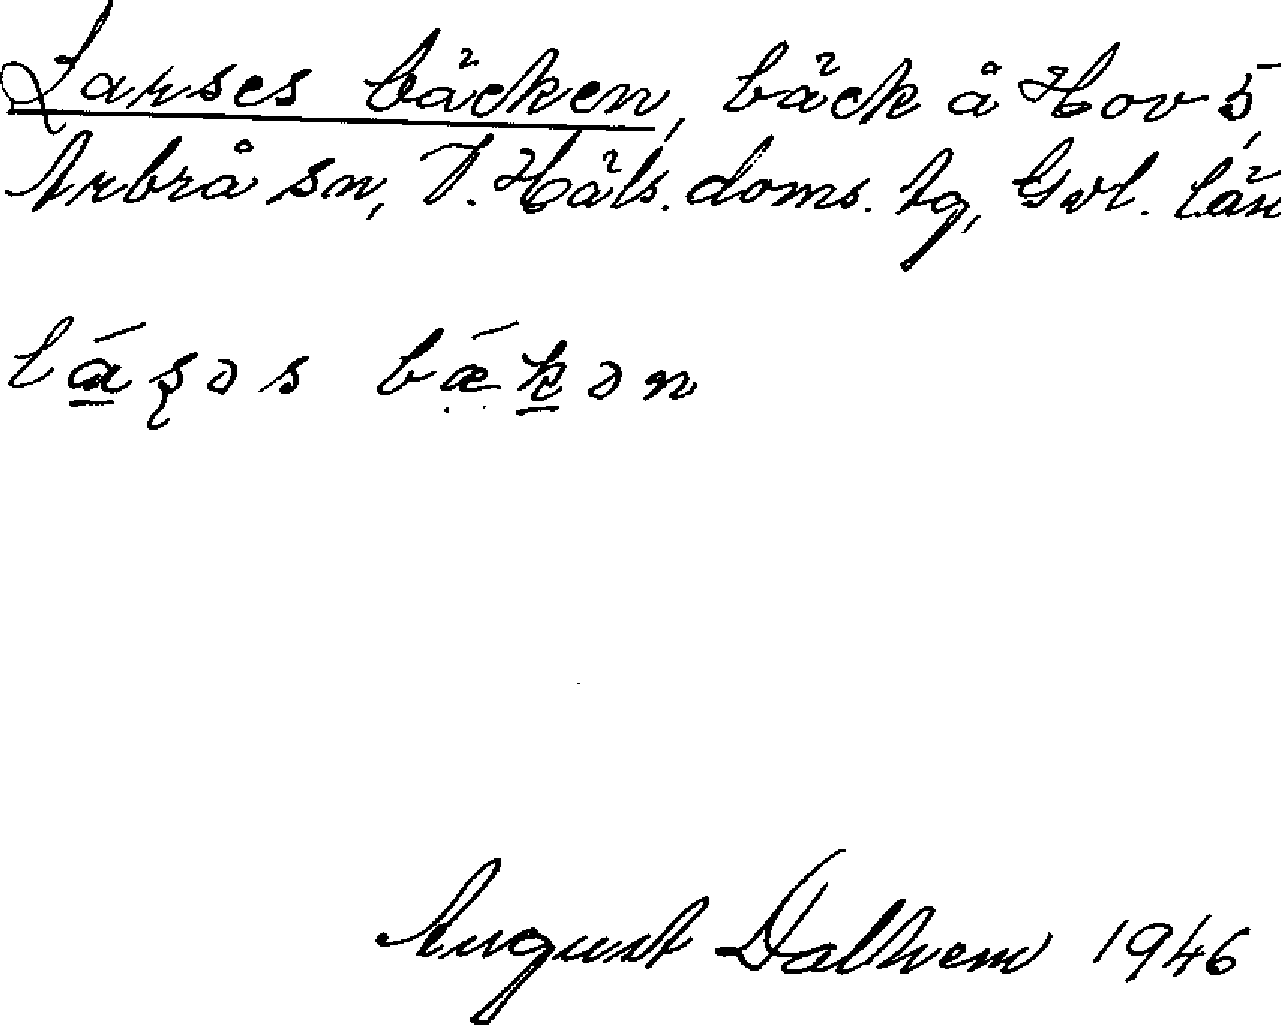 Larses bäcken, bäck å Hov 5,
Arbrå sn, V. Häls. doms. tg, Gvl. län
lá̱ʂəs bǽḵən
August Dalhem 1946